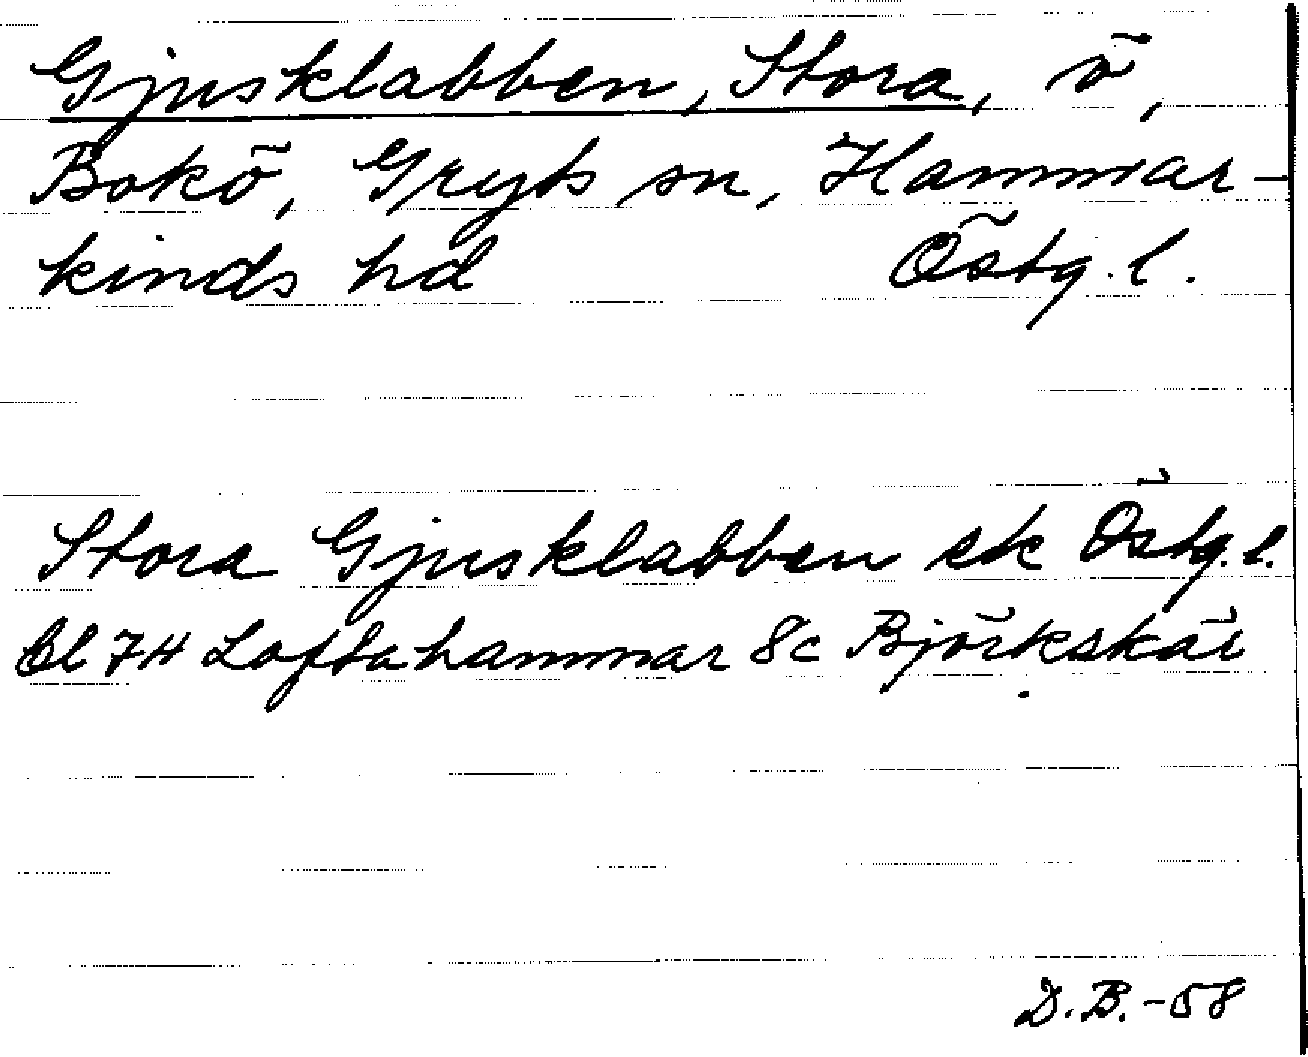 Gjusklabben, Stora, ö,
Bokö, Gryts sn, Hammar-
kinds hd Östg. l.
Stora Gjusklabben ek Östg. l.
Bl 7H Loftahammar 8c Björkskär
D.B.-58